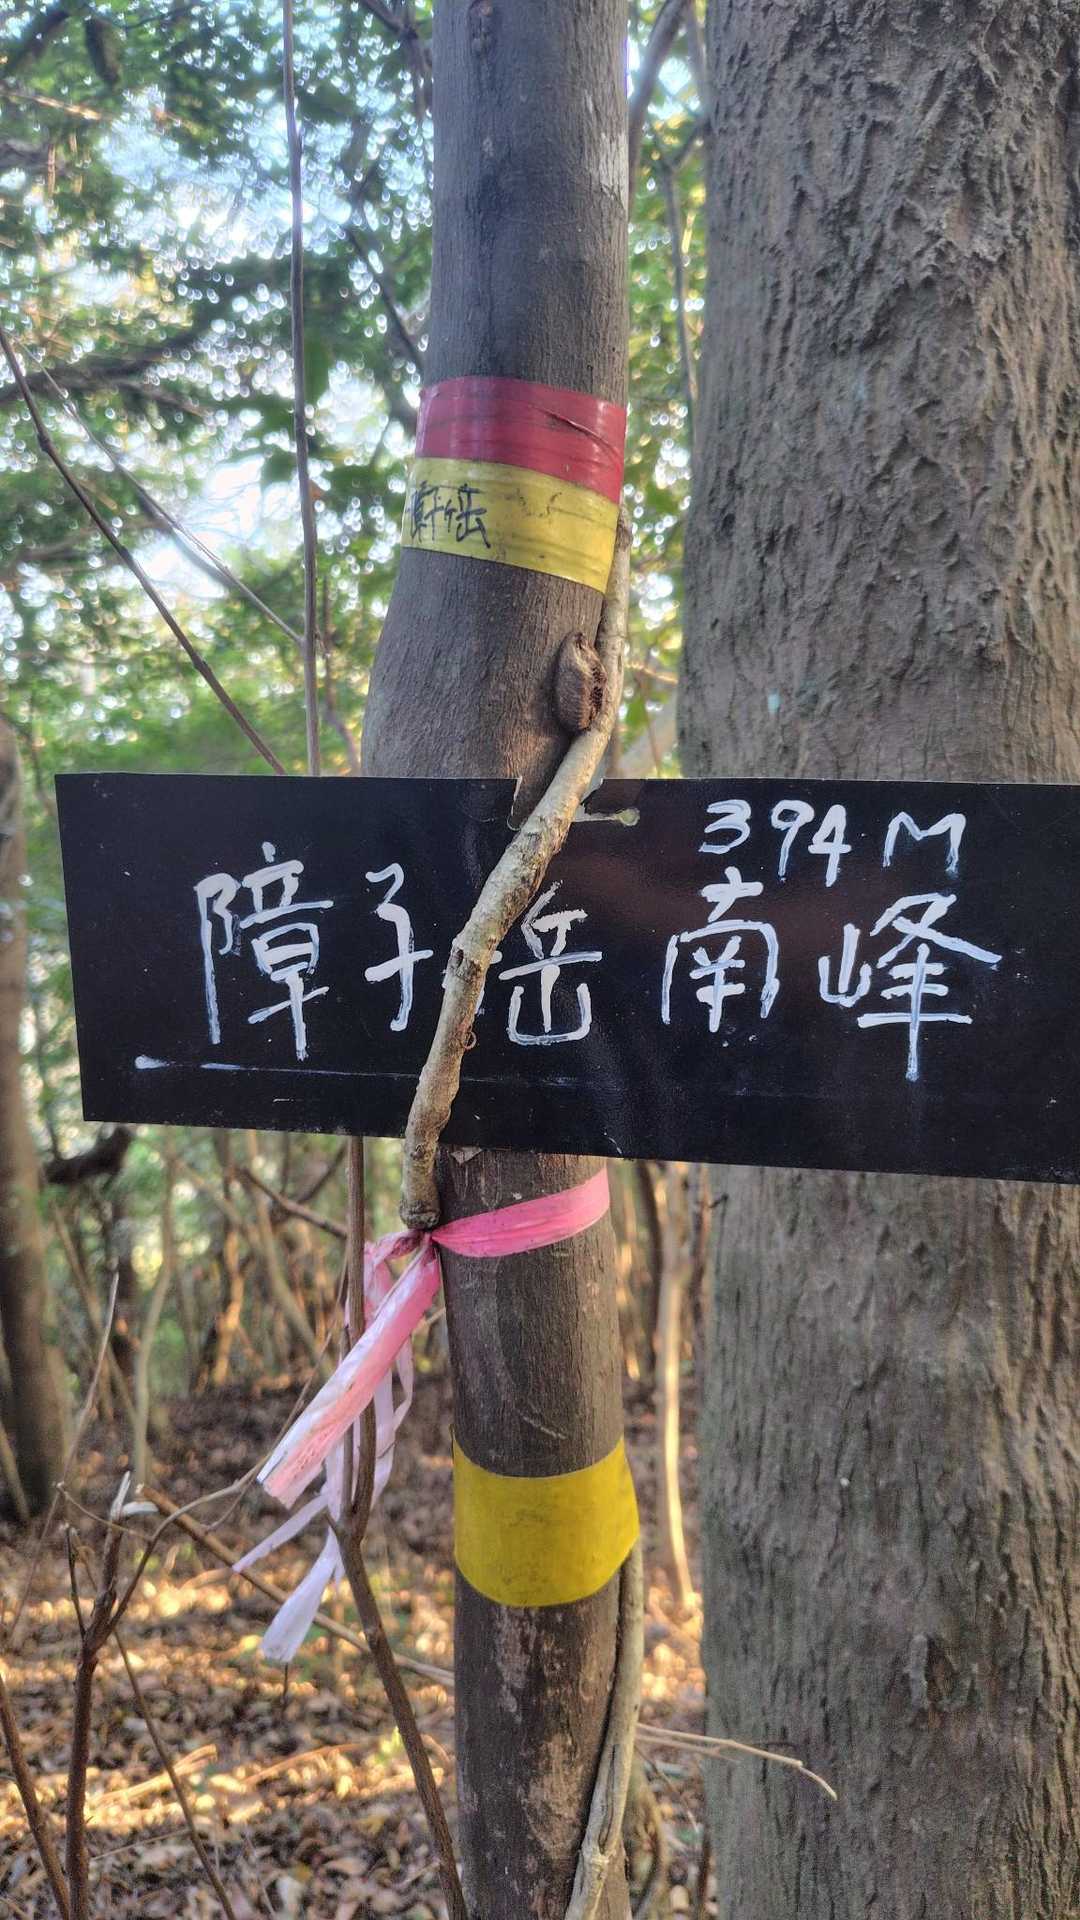 394M
障子岳南峰